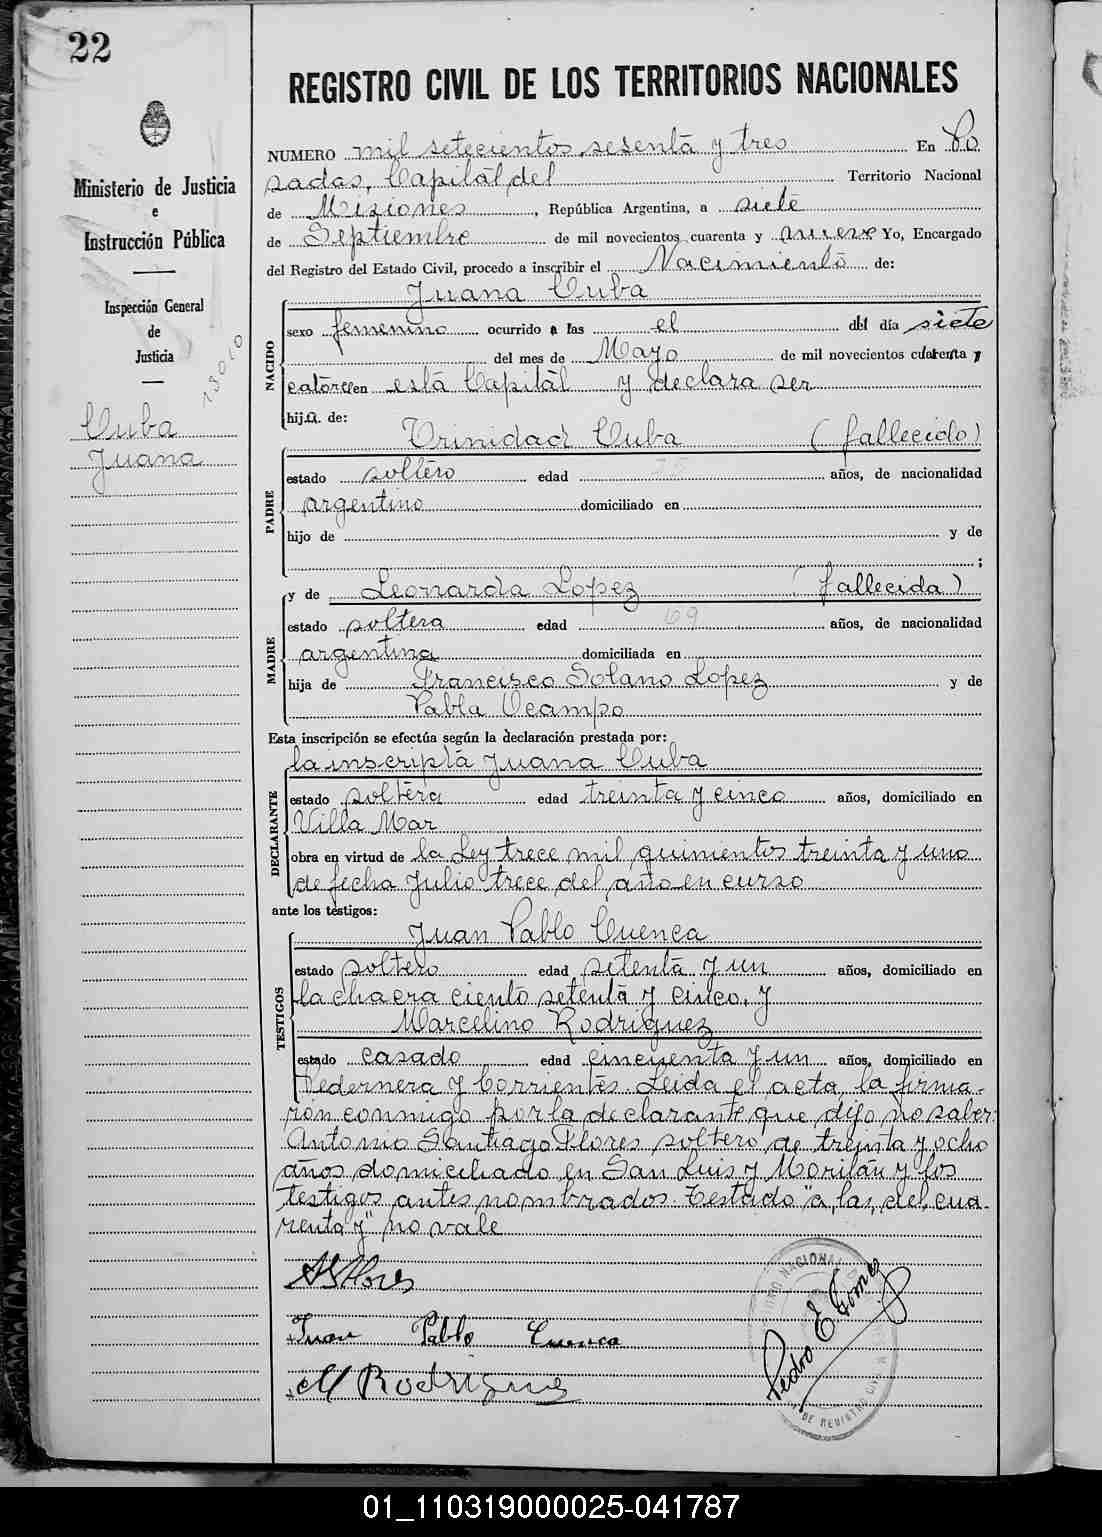 22
REGISTRO CIVIL DE LOS TERRITORIOS NACIONALES
Ministerio de Justicia
e
Instrucción Pública
Inspección General
de
Justicia
Cuba
Juana
NUMERO mil setecientos sesenta y tres En Po
sadas, Capital del Territorio Nacional
de Misiones, República Argentina, a siete
de Septiembre de mil novecientos cuarenta y nueve Yo, Encargado
del Registro del Estado Civil, procedo a inscribir el Nacimiento de:
NACIDO
Juana Cuba
sexo femenino ocurrido a las el del día siete
del mes de Mayo de mil novecientos cuarenta y
catorce en esta Capital y declara ser
hija de:
PADRE
Trinidad Cuba (fallecido)
estado soltero edad años, de nacionalidad
argentino domiciliado en
hijo de y de
;
MADRE
y de Leonarda Lopez (fallecida)
estado soltera edad años, de nacionalidad
argentina domiciliada en
hija de Francisco Solano Lopez y de
Pabla Ocampo
Esta inscripción se efectúa según la declaración prestada por:
DECLARANTE
la inscripta Juana Cuba
estado soltera edad treinta y cinco años, domiciliado en
Villa Mar
obra en virtud de la Ley trece mil quinientos treinta y uno
de fecha Julio trece del año en curso
ante los testigos:
TESTIGOS
Juan Pablo Cuenca
estado soltero edad setenta y un años, domiciliado en
la chacra ciento setenta y cinco, y
Marcelino Rodriguez
estado casado edad cincuenta y un años, domiciliado en
Pedernera y Corrientes. Leida el acta, la firma-
ron conmigo por la declarante que dijo no saber
Antonio Santiago Flores soltero de treinta y ocho
años domiciliado en San Luis y Morilán y los
testigos antes nombrados. Testado "a, las, del, cua-
renta y" no vale
ASFlores
Juan Pablo Cuenca
M Rodriguez
Pedro E Gomez
01_110319000025-041787